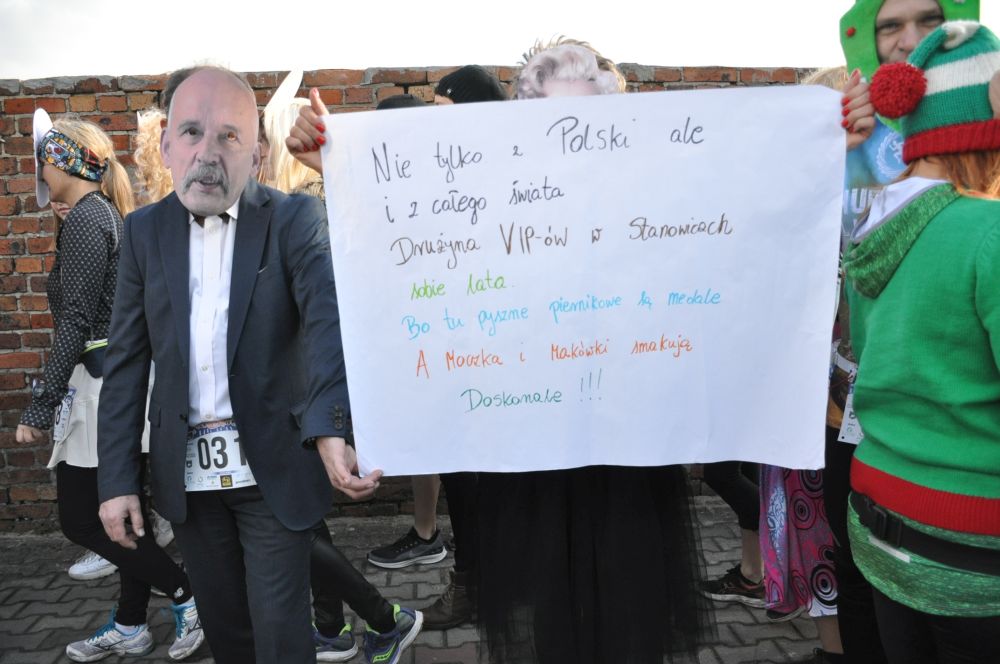 Nie tylko z Polski ale
i z całego świata
Drużyna VIP-ów w Stanowicach
sobie lata.
Bo tu pyszne piernikowe są medale
A Moczka i Makówki smakują
Doskonale !!!
031